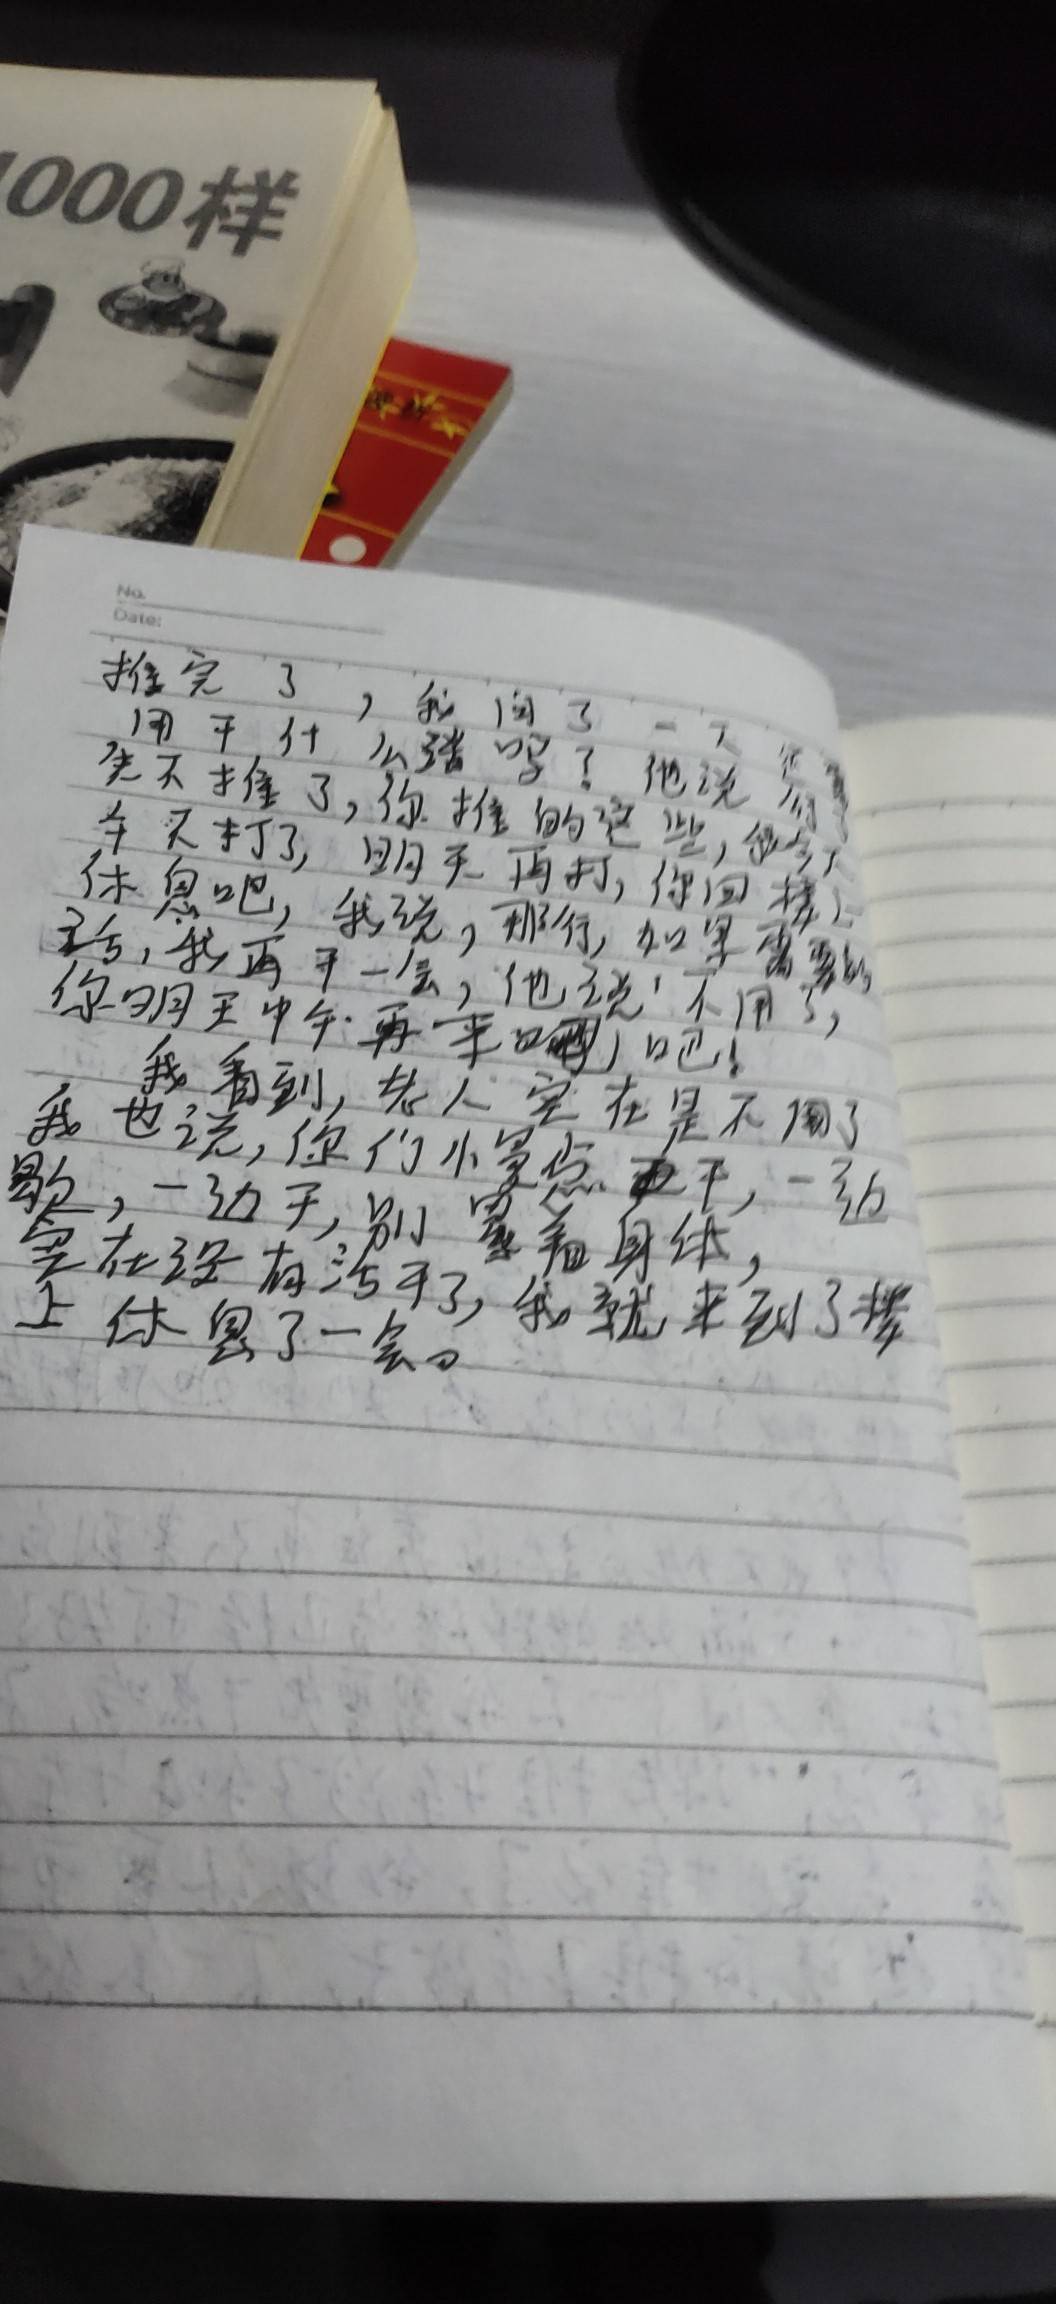 1000样
No.
Date:
推完了，我问了一下
用干什么活吗？他说
先不推了，你推的这些，
午不打了，明天再打，你回楼上
休息吧，我说，那行，如果需要的
话，我再干一会，他说不用了，
你明天中午再来吧！
我看到，老人实在是不用了
我也说，你们小受点再干，一边
歇，一边干，别累着身体，
实在没有活干了，我就来到了楼
上休息了一会。